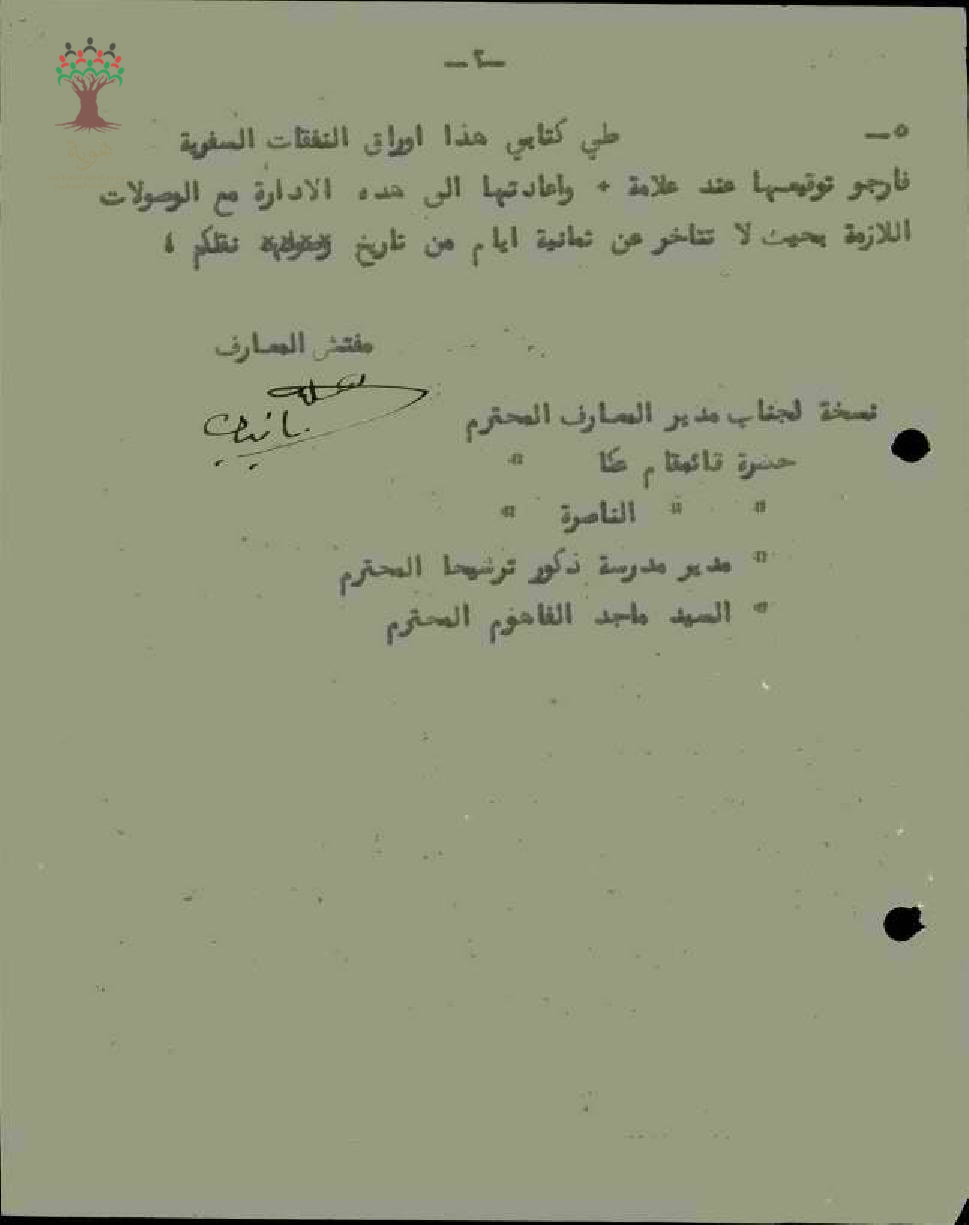 -٢-
٥- طي كتابي هذا اوراق النفقات السفرية
فارجو توقيعها عند علامة + واعادتها الى هذه الادارة مع الوصولات
اللازمة بحيث لا تتاخر عن ثمانية ايام من تاريخ نقلكم ؛
مفتش المعارف
نسخة لجناب مدير المعارف المحترم
حضرة قائمقام عكا "
" " الناصرة "
" مدير مدرسة ذكور ترشيحا المحترم
" السيد ماجد الفاهوم المحترم